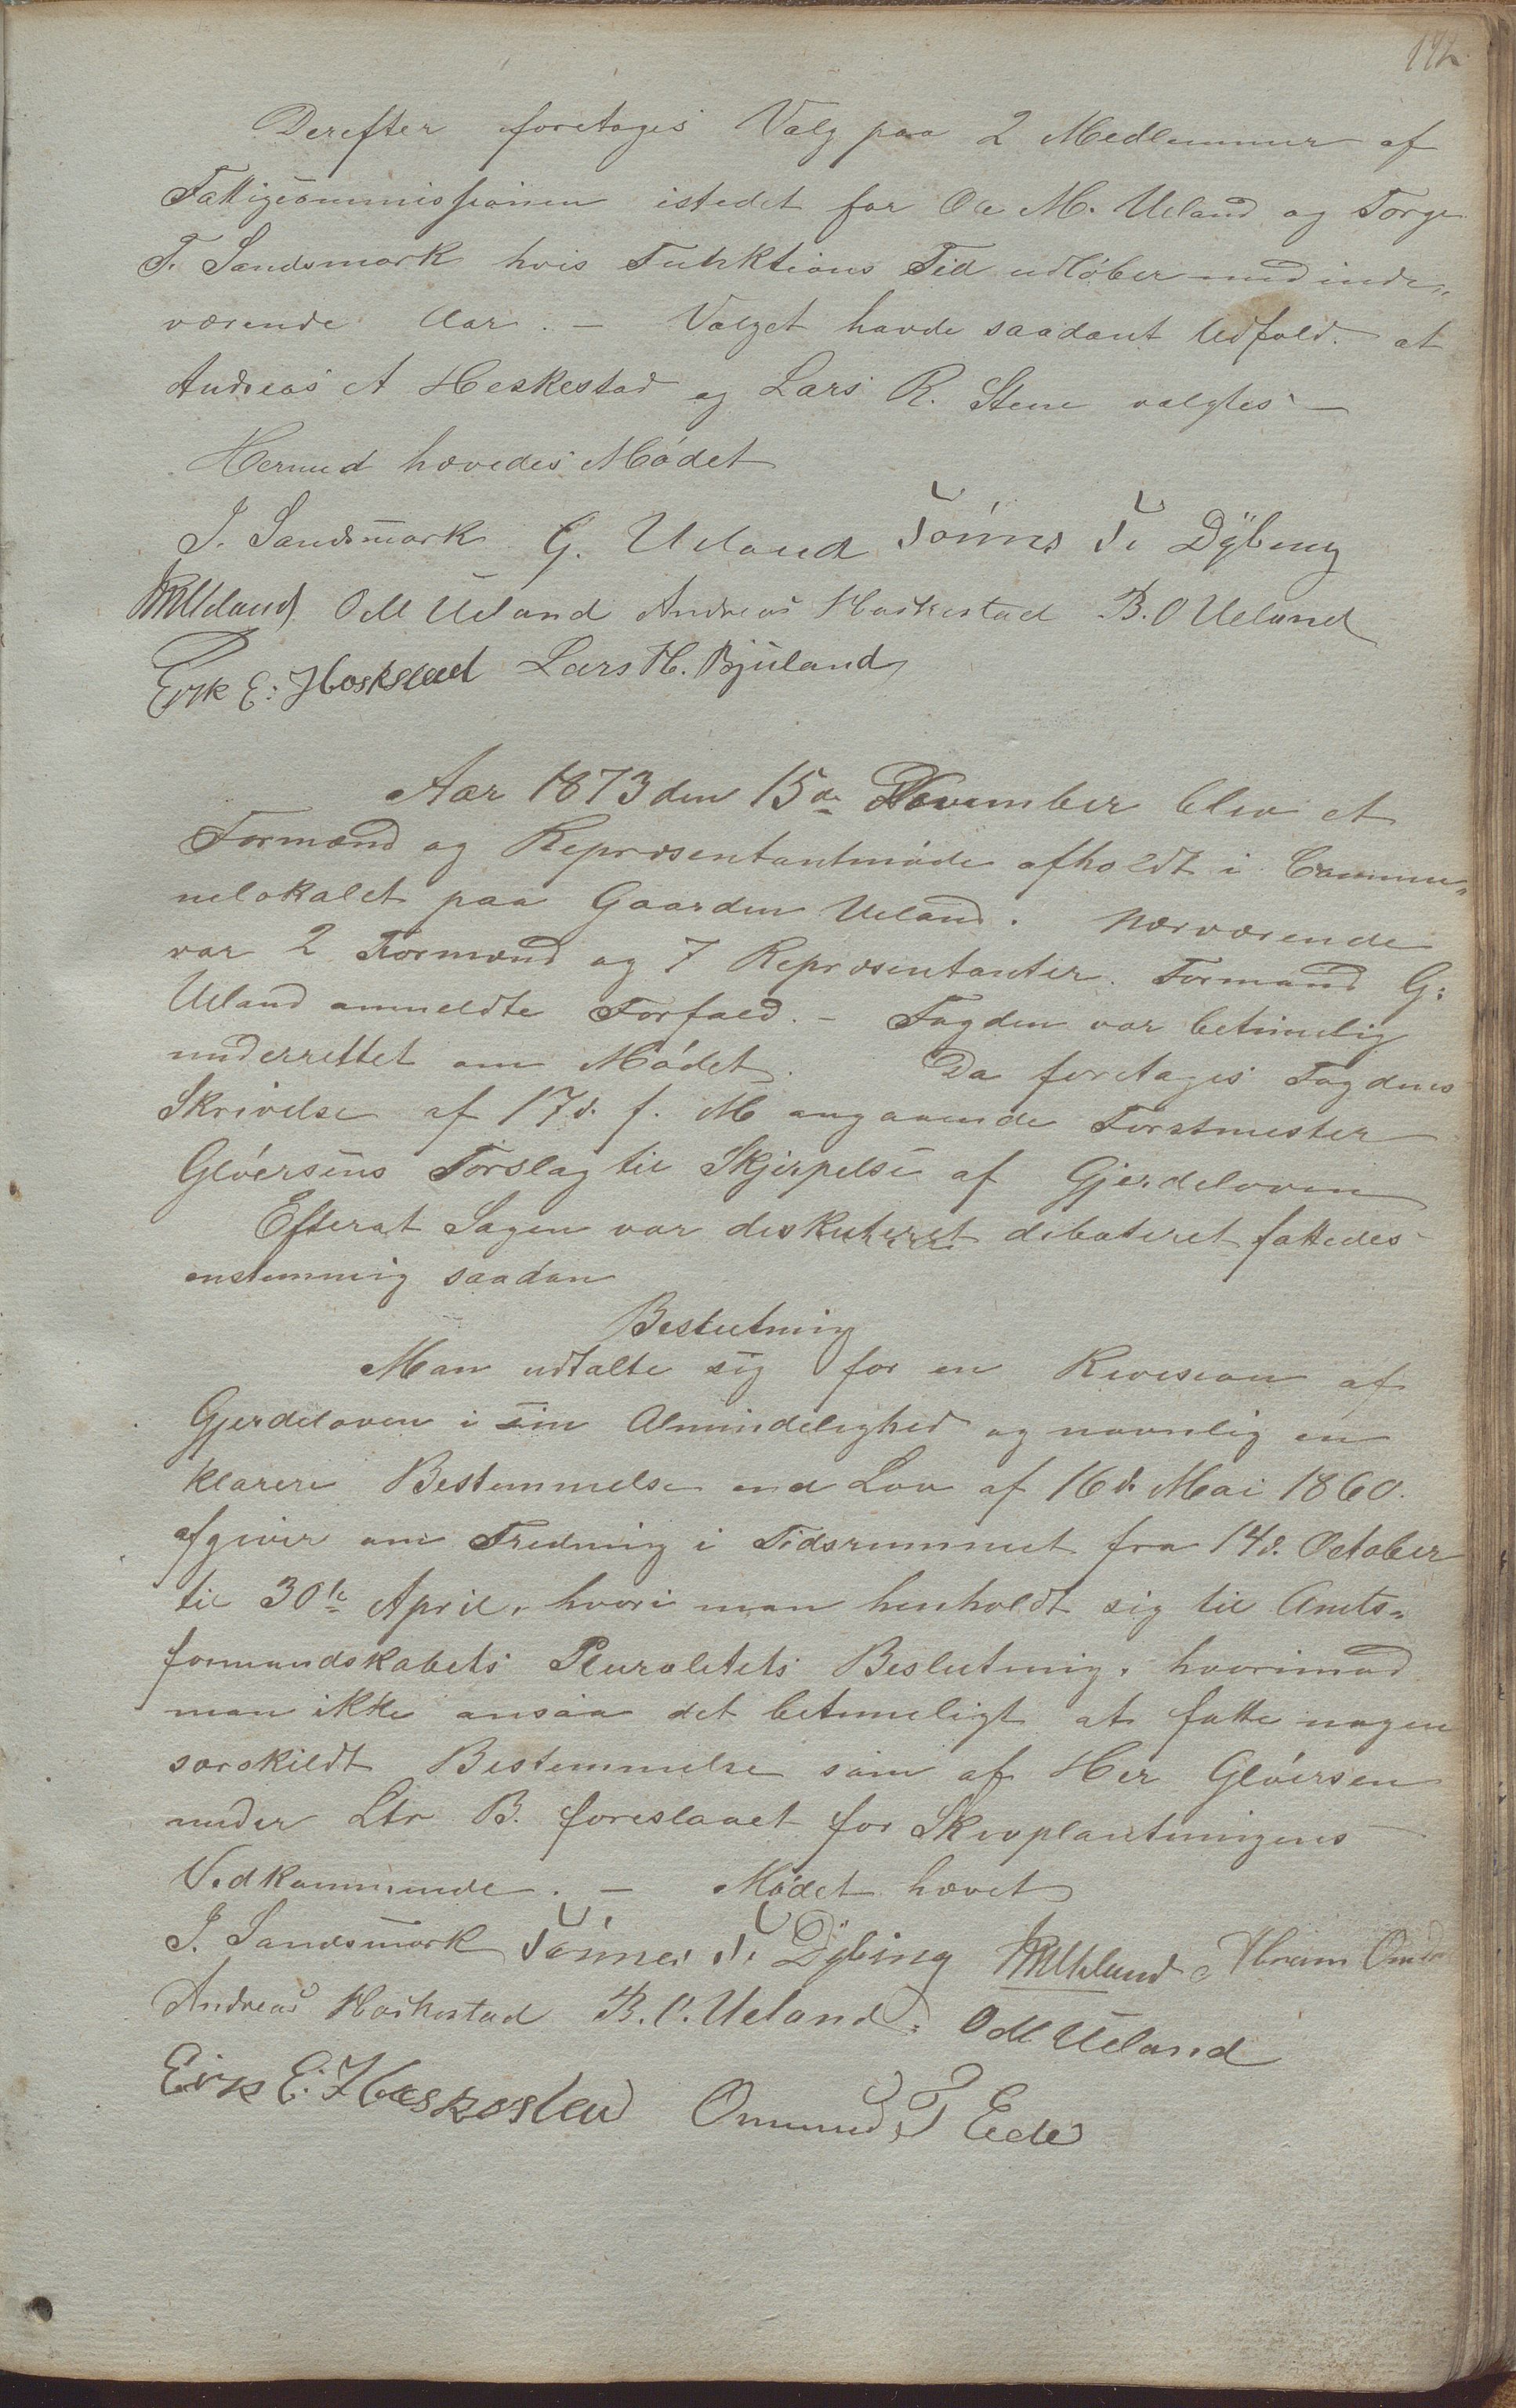 192
Derefter foretoges Valg paa 2 Medlemmer af
Fattigcommissionen istedet for Ole M. Ueland og Torge
T. Sandsmark hvis Funktions Tid udløber med inde„
værende Aar. — Valget havde saadant Udfald. at
Andreas A Heskestad og Lars R. Stene valgtes —
Hermed hævedes Mødet
J. Sandsmark G. Ueland Tønnes T. Dÿbing
Ueland O M Ueland Andreas Heskestad B. O Ueland
Erik E: Heskestad Lars H. Bjuland
Aar 1873 den 15de November blev et
Formænd og Repræsentantmøde afholdt i Commu„
nelokalet paa Gaarden Ueland. Nærværende
var 2 Formænd og 7 Repræsentanter. Formand G:
Ueland anmeldte Forfald. — Fogden var betimelig
underrettet om Mødet. Da foretages Fogdens
Skrivelse af 17d. f. M angaaende Forstmester
Gløersens Forslag til Skjerpelse af Gjerdeloven
Efterat Sagen var diskuteret debateret fattedes
enstemmig saadan
Beslutning
Man udtalte sig for en Revision af
Gjerdeloven i sin Almindelighed og navnlig en
klarere Bestemmelse end Lov af 16d. Mai 1860.
afgiver om Fredning i Tidsrummet fra 14d. October
til 30te April, hvori man henholdt sig til Amts„
formandskabets Pluralitets Beslutning, hvorimod
man ikke ansaa det betimeligt at fatte nogen
særskildt Bestemmelse som af Her Gløersen
under Ltr B. foreslaaet for Skovplantningens
Vedkommende. — Mødet hævet
J. Sandsmark Tønnes T. Dÿbing Ueland Abram
Andreas Heskestad B. O. Ueland. O M Ueland
Eirik E. Heskestad Ommund T Eide